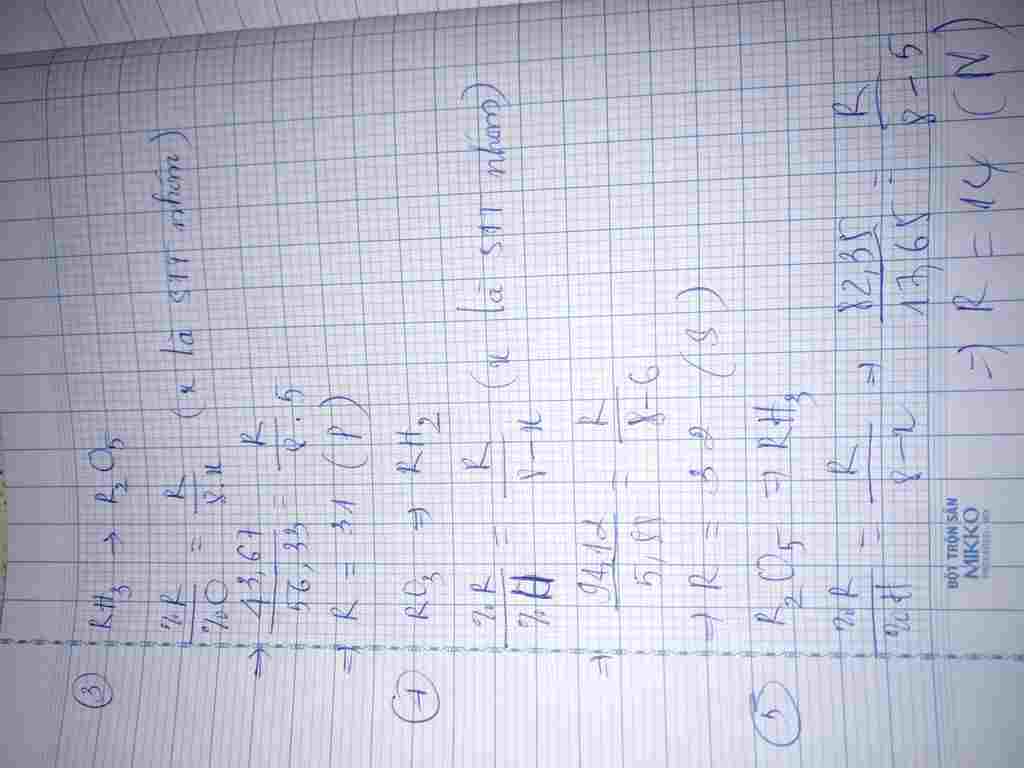 ③ RH₃ → R₂O₅
%R/%O = R/8.x (x là STT nhóm)
⇒ 43,67/56,33 = R/8.5
⇒ R = 31 (P)
④ RO₃ ⇒ RH₂
%R/%H = R/8-x (x là STT nhóm)
⇒ 94,12/5,88 = R/8-6
⇒ R = 32 (S)
⑤ R₂O₅ ⇒ RH₃
%R/%H = R/8-x ⇒ 82,35/17,65 = R/8-5
⇒ R = 14 (N)
BỘT TRỘN SẴN
MIKKO